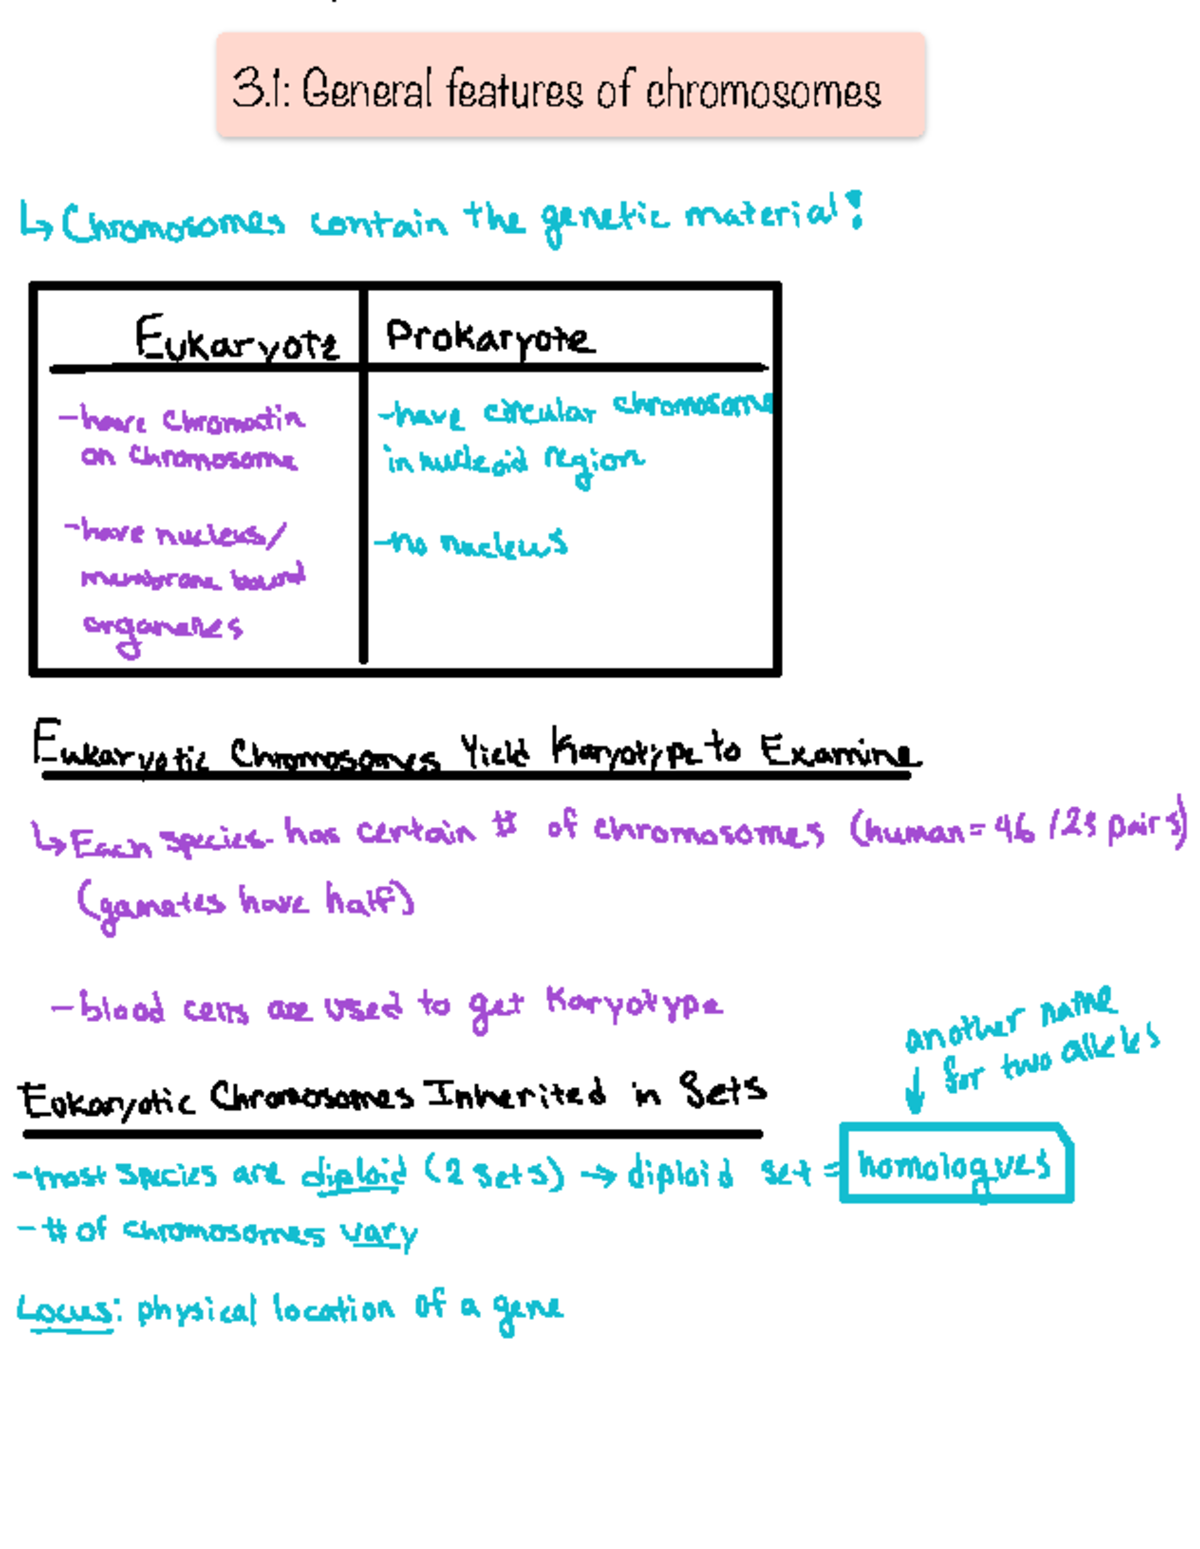 3.1: General features of chromosomes
↳ Chromosomes contain the genetic material!
Eukaryote
Prokaryote
-have chromatin
on chromosome
-have nucleus/
membrane bound
organelles
-have circular chromosome
in nucleoid region
-no nucleus
Eukaryotic Chromosomes Yield Karyotype to Examine
↳ Each species has certain # of chromosomes (human = 46 / 23 pairs)
(gametes have half)
- blood cells are used to get Karyotype
another name
for two alleles
Eukaryotic Chromosomes Inherited in Sets
-most species are diploid (2 sets) → diploid set = homologues
- # of chromosomes vary
Locus: physical location of a gene